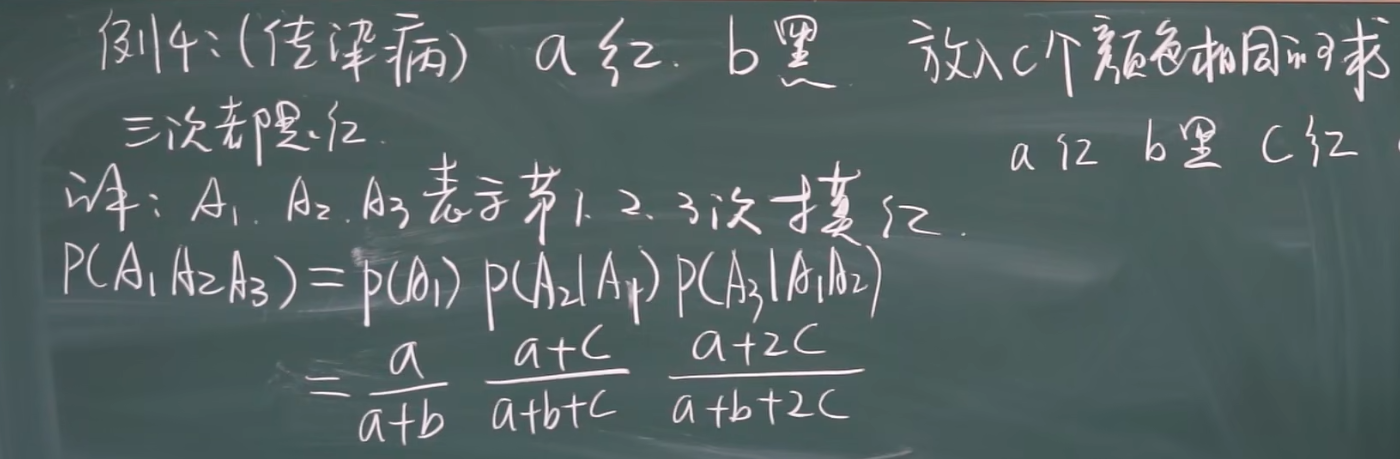 例4:(传染病) a红. b黑 放入c个颜色相同的球
三次都是红.
a红 b黑 c红
解: A₁. A₂. A₃表示第1.2.3次摸红.
P(A₁A₂A₃)=P(A₁)P(A₂|A₁)P(A₃|A₁A₂)
= a/(a+b) (a+c)/(a+b+c) (a+2c)/(a+b+2c)